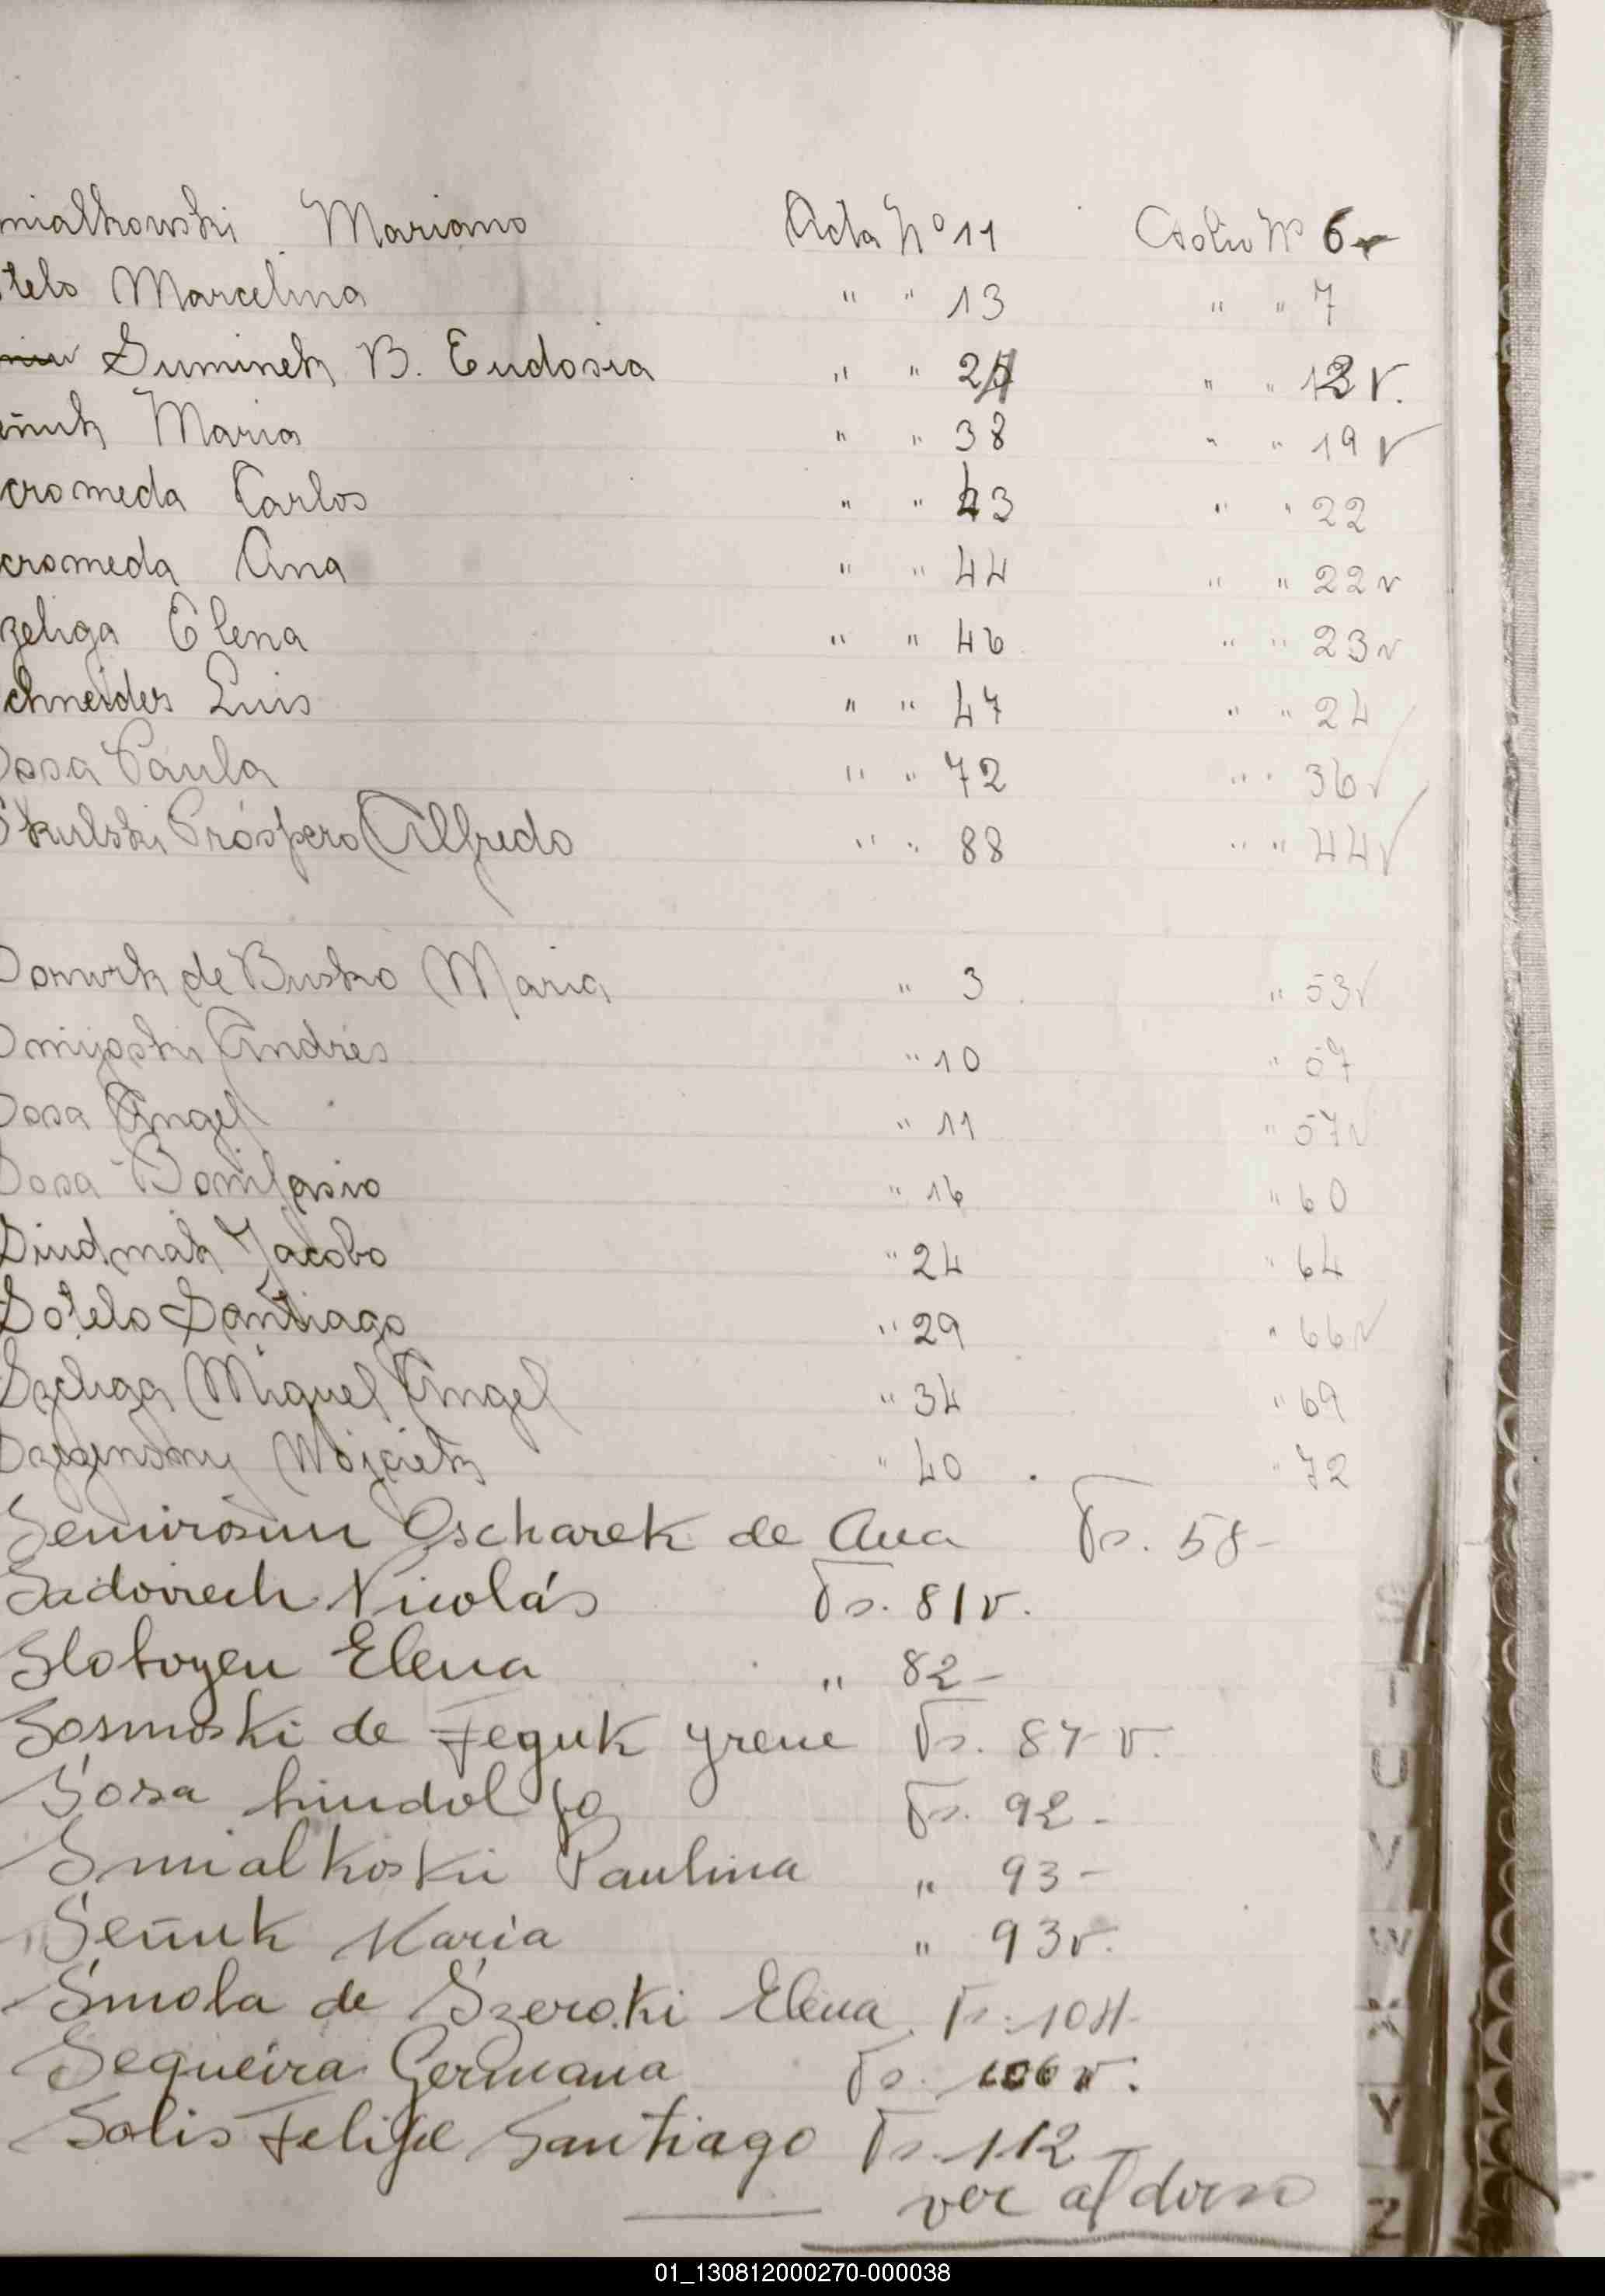 mialkowski Mariano Acta Nº 11 Folio Nº 6v
telo Marcelina " " 13 " " 7
Suminek B. Eudosia " " 24 " " 12 v.
eñuk Maria " " 38 " " 19 v
cromeda Carlos " " 43 " " 22
cromeda Ana " " 44 " " 22 v
zeliga Elena " " 46 " " 23 v
chneider Luis " " 47 " " 24
Sosa Paula " " 72 " " 36 v
Skulski Próspero Alfredo " " 88 " " 44 v
de Busko Maria " 3 " 53 v
Smijoski Andrés " 10 " 57
Sosa Angel " 11 " 57 v
Sosa Bonifasio " 16 " 60
Sindmak Jacobo " 24 " 64
Sotelo Santiago " 29 " 66 v
Szeliga Miguel Angel " 34 " 69
Wojciek " 40 " 72
Oscharek de Ana Fo. 58-
Nicolás Fo. 81 v.
Slotoyen Elena " 82-
Sosmoski de Feguk Yrene Fo. 87 v.
Sosa Lindolfo Fo. 92-
Smialkoski Paulina " 93-
Señuk Maria " 93 v.
Smola de Szeroki Elena Fo. 104-
Sequeira Germana Fo. 106 v.
Solis Felipe Santiago Fo. 112-
ver al dorso
T
U
V
W
X
Y
Z
01_130812000270-000038